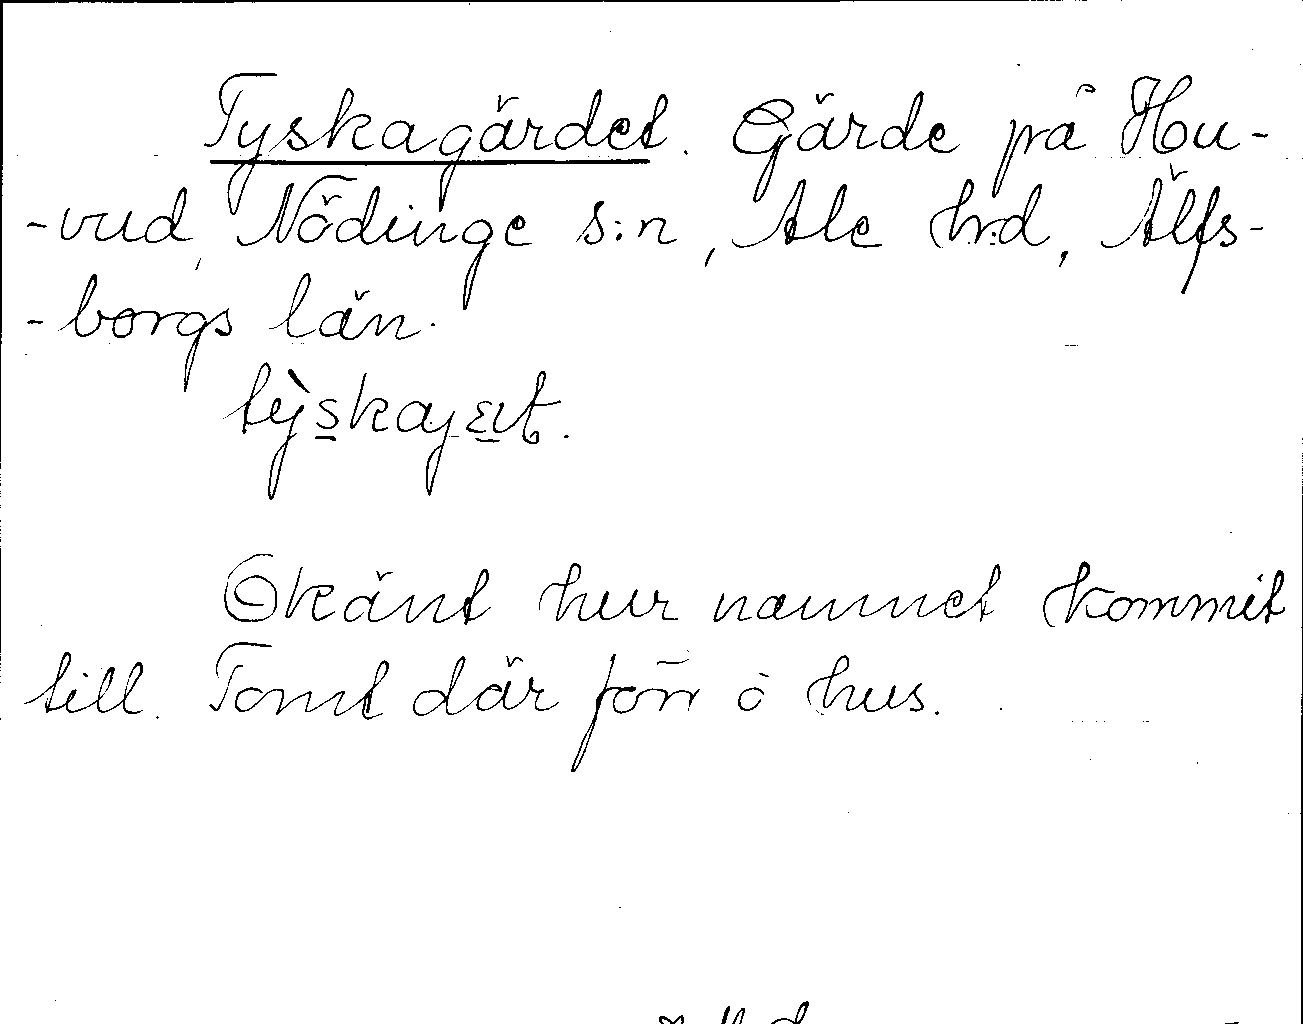 Tyskagärdet. Gärde på Hu-
-vud, Nödinge s:n, Ale h:d, Älfs-
-borgs län.
Okänt hur namnet kommit
till. Tomt där förr o hus.